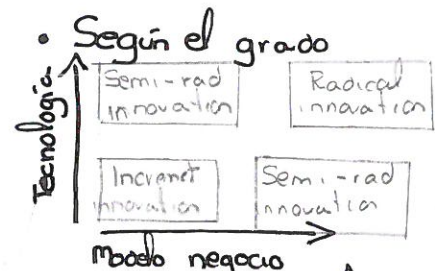 • Según el grado
Tecnología
Semi-rad
innovation
Radical
innovation
Incremet
innovation
Semi-rad
innovation
Modelo negocio